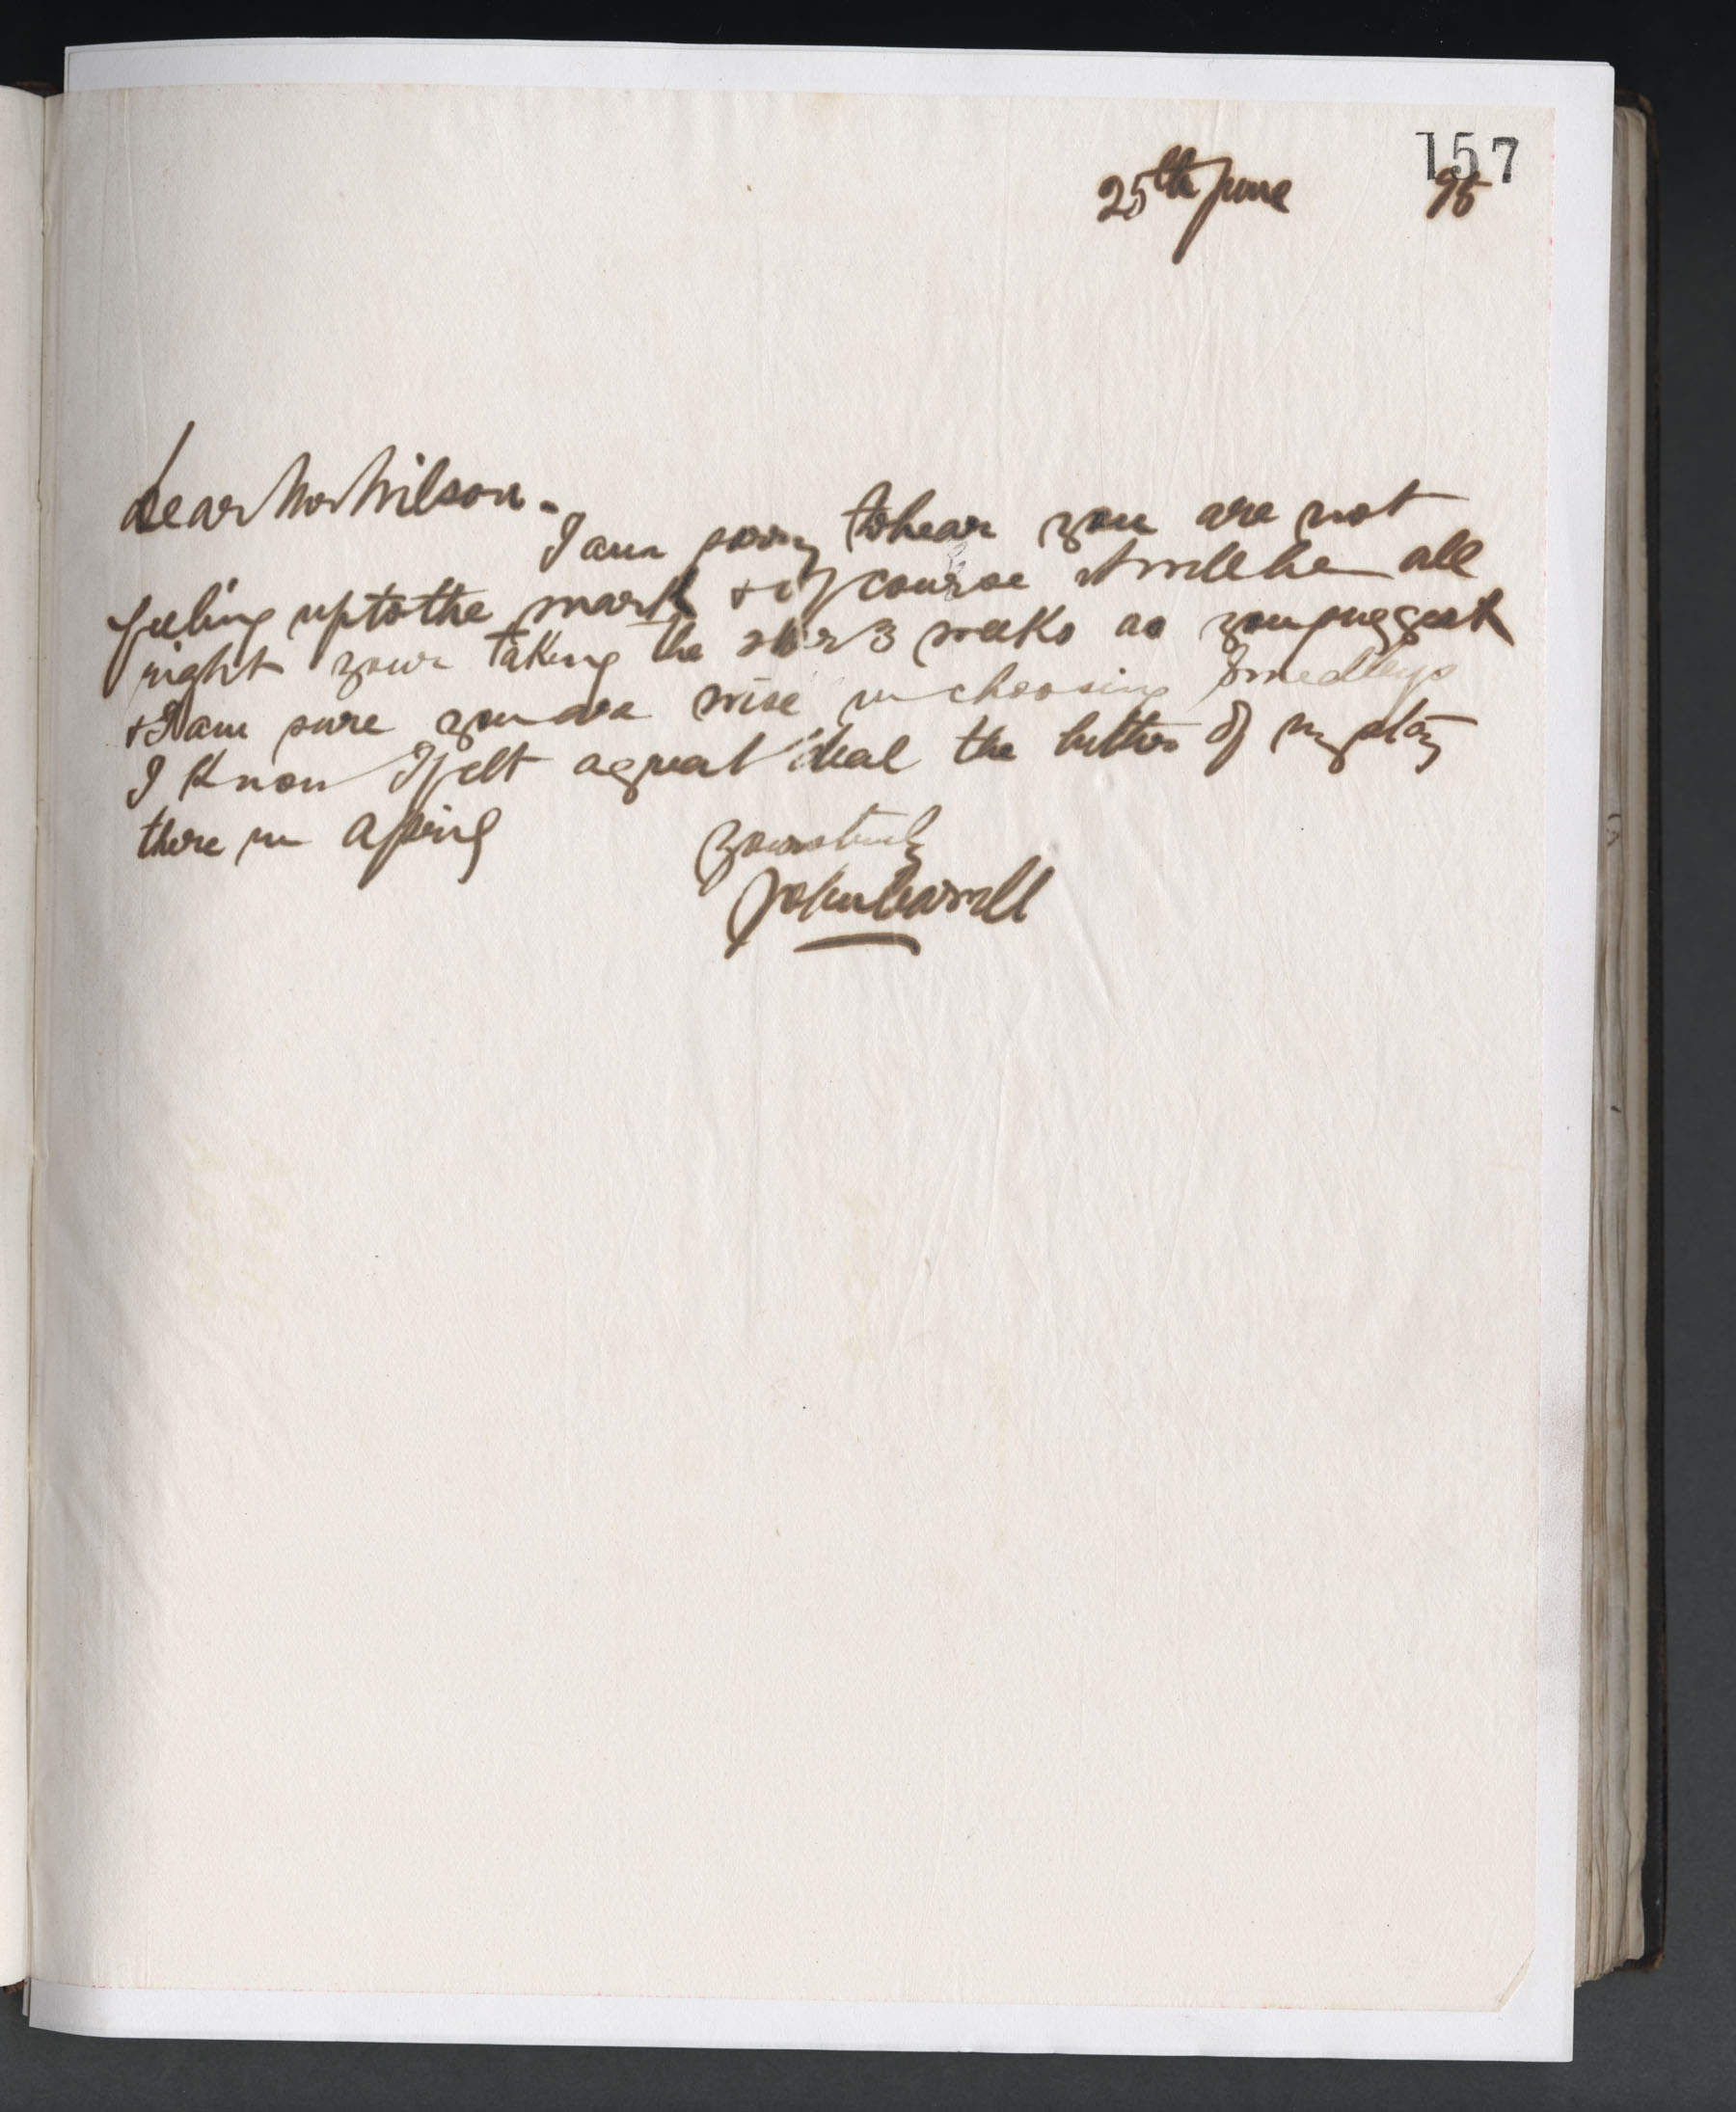 157
25th June 95
Dear Mr Wilson.
I am sorry to hear you are not
feeling up to the mark & of course it will be all
right your taking the 2 or 3 weeks as you suggest
& I am sure you are wise in choosing Smedleys
I know I felt a great deal the better of my stay
there in April
Yours truly
John